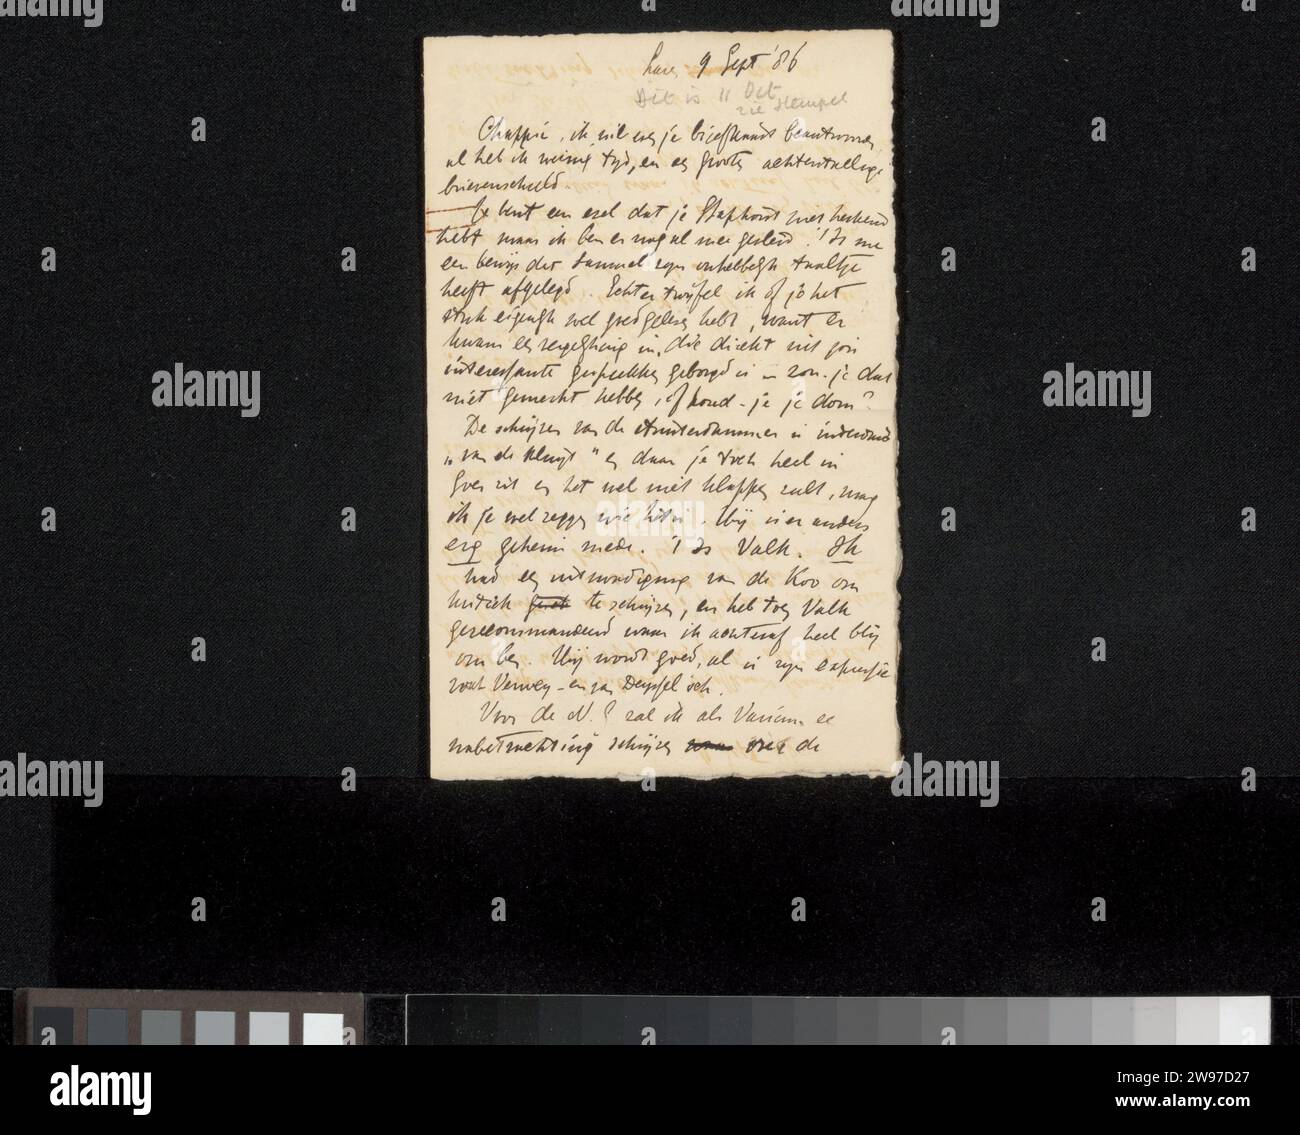 9 Sept '86
Dit is 11 Oct
zie stempel
Chappie, ik wil eens je briefkaart beantwoorden
al heb ik weinig tijd, en een groote achterstallige
brievenschuld
Je bent een ezel dat je Staphorst niet herkend
hebt maar ik ben er nog al mee gevleid. 't Is me
een bewijs dat Samuel zijn onhebbelijk taaltje
heeft afgelegd. Echter twijfel ik of je het
stuk eigenlijk wel goed gelezen hebt, want er
kwam een vergelijking in, die direkt uit jou
interessante gesprekken geborgd is – zou je dat
niet gemerkt hebben, of houd-je je dom?
De schrijver van de Amsterdammer is inderdaad
„van de kluit" en daar je toch heel in
Goes zit en het wel niet klappen zult, mag
ik je wel zeggen wie hij is. Hij is er anders
erg geheim mede. 't Is Valk. Ik
had een uitnoodiging van de Koo om
kritiek te schrijven, en heb toen Valk
gerecommandeerd waar ik achteraf heel blij
om ben. Hij wordt goed, al is zijn expressie
wat Verwey- en van Deysselsch.
Voor de N.G. zal ik als Varium een
nabetrachting schrijven over de
alamy
alamy
Image ID: 2W97D27
www.alamy.com